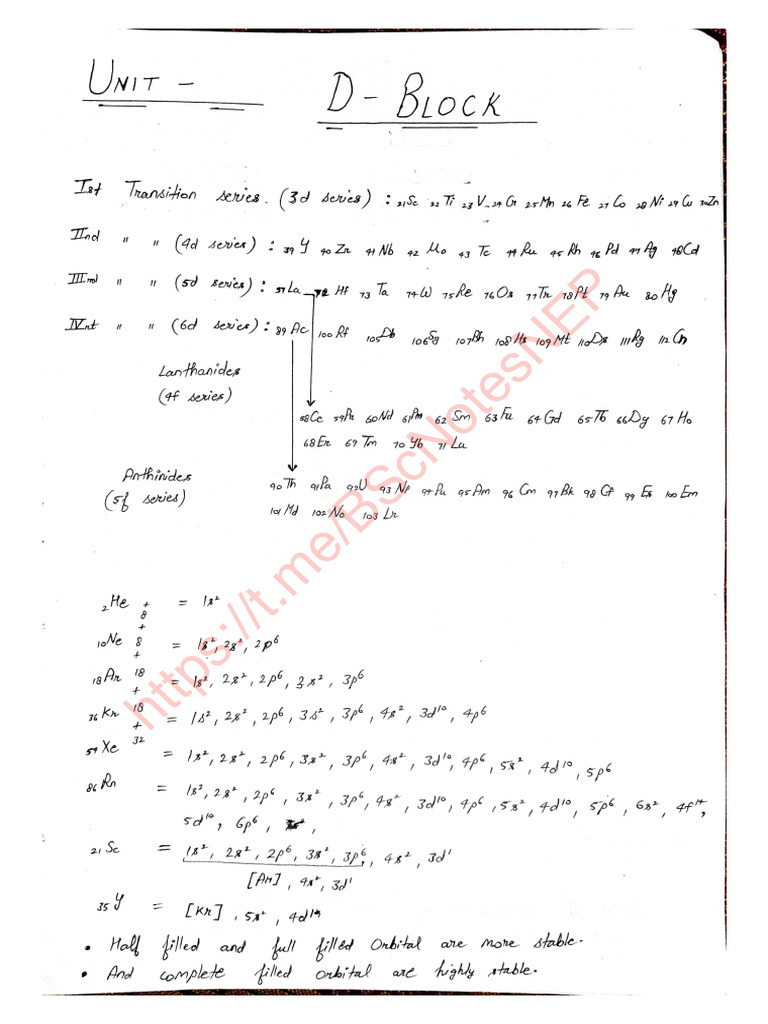 UNIT - D-BLOCK
Ist Transition series. (3d series) : 21Sc 22Ti 23V 24Cr 25Mn 26Fe 27Co 28Ni 29Cu 30Zn
IInd " " (4d series) : 39Y 40Zr 41Nb 42Mo 43Tc 44Ru 45Rh 46Pd 47Ag 48Cd
IIIrd " " (5d series) : 57La 72Hf 73Ta 74W 75Re 76Os 77Ir 78Pt 79Au 80Hg
IVnt " " (6d series) : 89Ac 100Rf 105Db 106Sg 107Bh 108Hs 109Mt 110Ds 111Rg 112Cn
Lanthanides
(4f series)
58Ce 59Pr 60Nd 61Pm 62Sm 63Eu 64Gd 65Tb 66Dy 67Ho
68Er 69Tm 70Yb 71Lu
Anthinides
(5f series)
90Th 91Pa 92U 93Np 94Pu 95Am 96Cm 97Bk 98Cf 99Es 100Em
101Md 102No 103Lr
2He = 1s²
+
8
+
10Ne 8 = 1s², 2s², 2p⁶
+
18Ar 18 = 1s², 2s², 2p⁶, 3s², 3p⁶
+
36Kr 18 = 1s², 2s², 2p⁶, 3s², 3p⁶, 4s², 3d¹⁰, 4p⁶
+
54Xe 32 = 1s², 2s², 2p⁶, 3s², 3p⁶, 4s², 3d¹⁰, 4p⁶, 5s², 4d¹⁰, 5p⁶
86Rn = 1s², 2s², 2p⁶, 3s², 3p⁶, 4s², 3d¹⁰, 4p⁶, 5s², 4d¹⁰, 5p⁶, 6s², 4f¹⁴,
5d¹⁰, 6p⁶,
21Sc = 1s², 2s², 2p⁶, 3s², 3p⁶, 4s², 3d¹
[Ar], 4s², 3d¹
35Y = [Kr], 5s², 4d
• Half filled and full filled Orbital are more stable.
• And complete filled orbital are highly stable.
https://t.me/BScNotesNEP